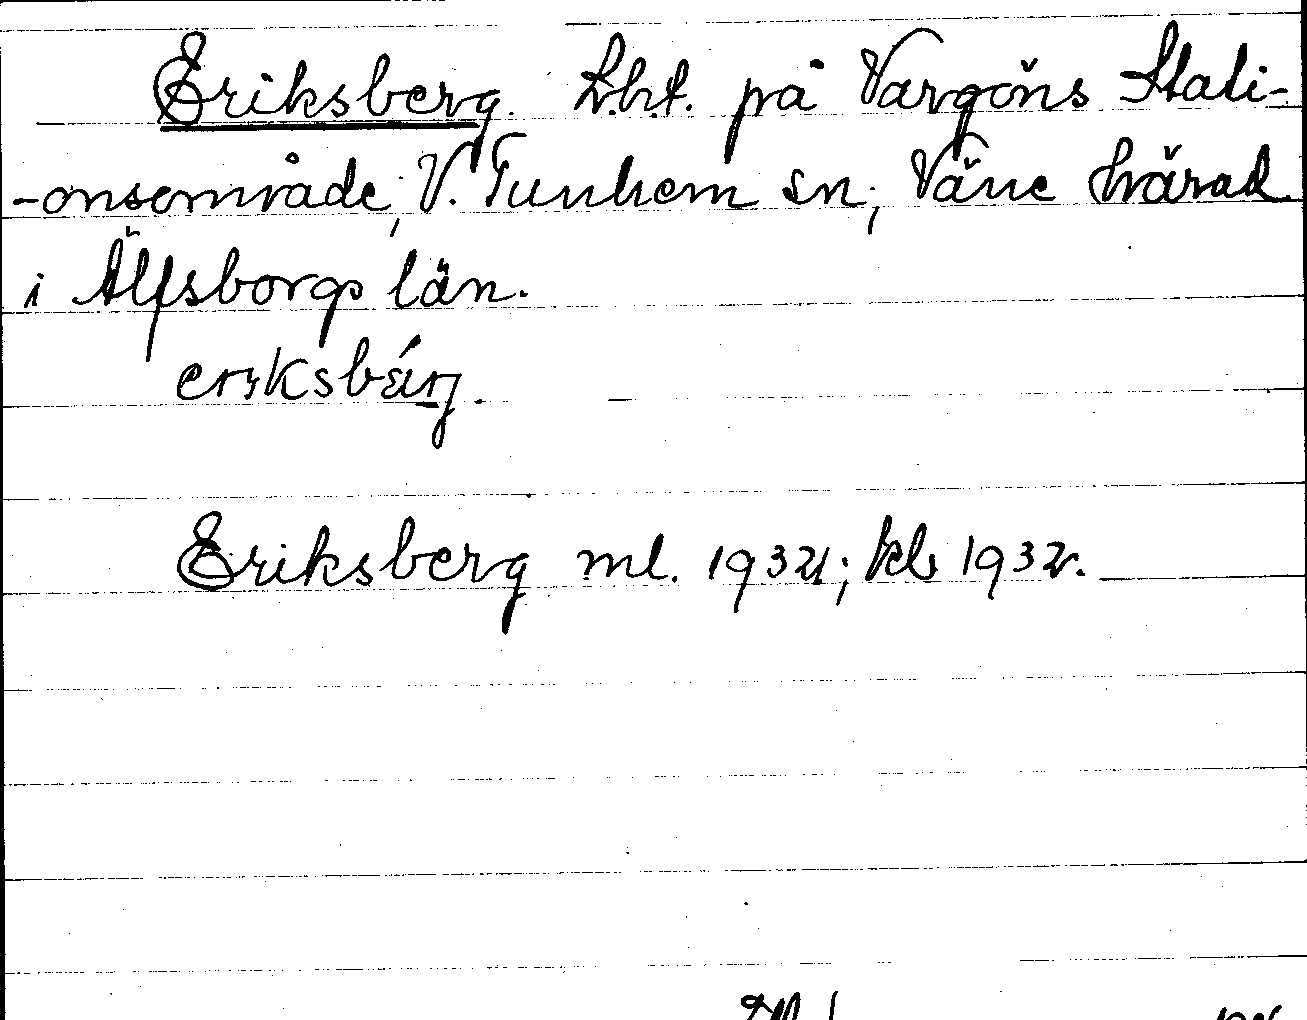 Eriksberg. Lht. på Vargöns Stati-
-onsområde, V. Tunhem sn, Väne härad
i Älfsborgs län.
Eriksberg ml. 1932; kb 1932.